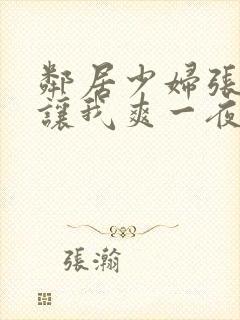 鄰居少婦張
讓我爽一夜
張瀚